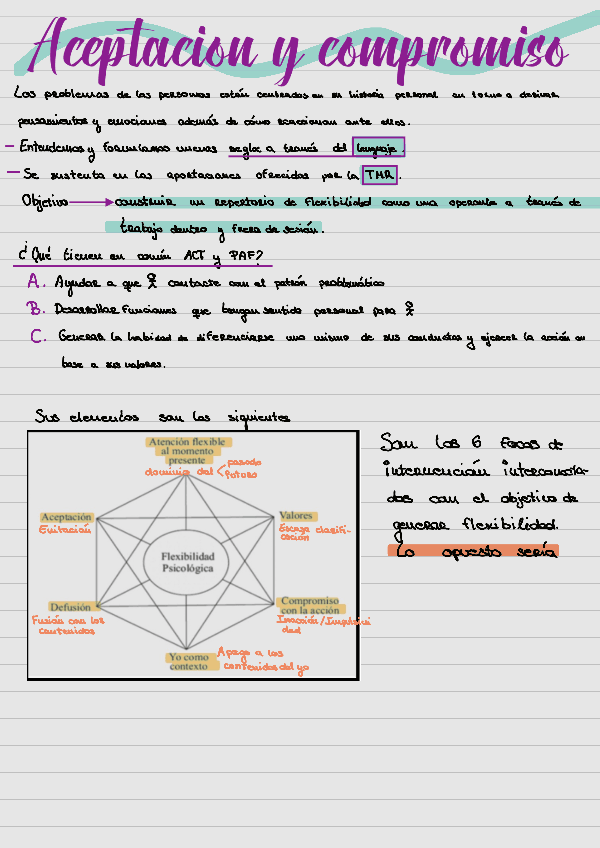 Aceptacion y compromiso
Los problemas de las personas están centrados en su historia personal en torno a desear
pensamientos y emociones además de cómo reaccionan ante ellos.
- Entendemos y formulamos nuevas reglas a través del lenguaje.
- Se sustenta en las aportaciones ofrecidas por la TMR.
Objetivo → construir un repertorio de flexibilidad como una operante a través de
trabajo dentro y fuera de sesión.
¿Qué tienen en común ACT y PAF?
A. Ayudar a que contacte con el patrón problemático
B. Desarrollar funciones que tengan sentido personal para
C. Generar la habilidad de diferenciarse uno mismo de sus conductas y ejercer la acción en
base a sus valores.
Sus elementos son los siguientes
Atención flexible
al momento
presente
dominio del pasado
futuro
Aceptación
Evitación
Valores
Escasa clarifi-
cación
Flexibilidad
Psicológica
Defusión
Fusión con los
contenidos
Compromiso
con la acción
Inacción/Impulsivi
dad
Yo como
contexto
Apego a los
contenidos del yo
Son las 6 fases de
intervención interconecta-
das con el objetivo de
generar flexibilidad.
Lo opuesto sería